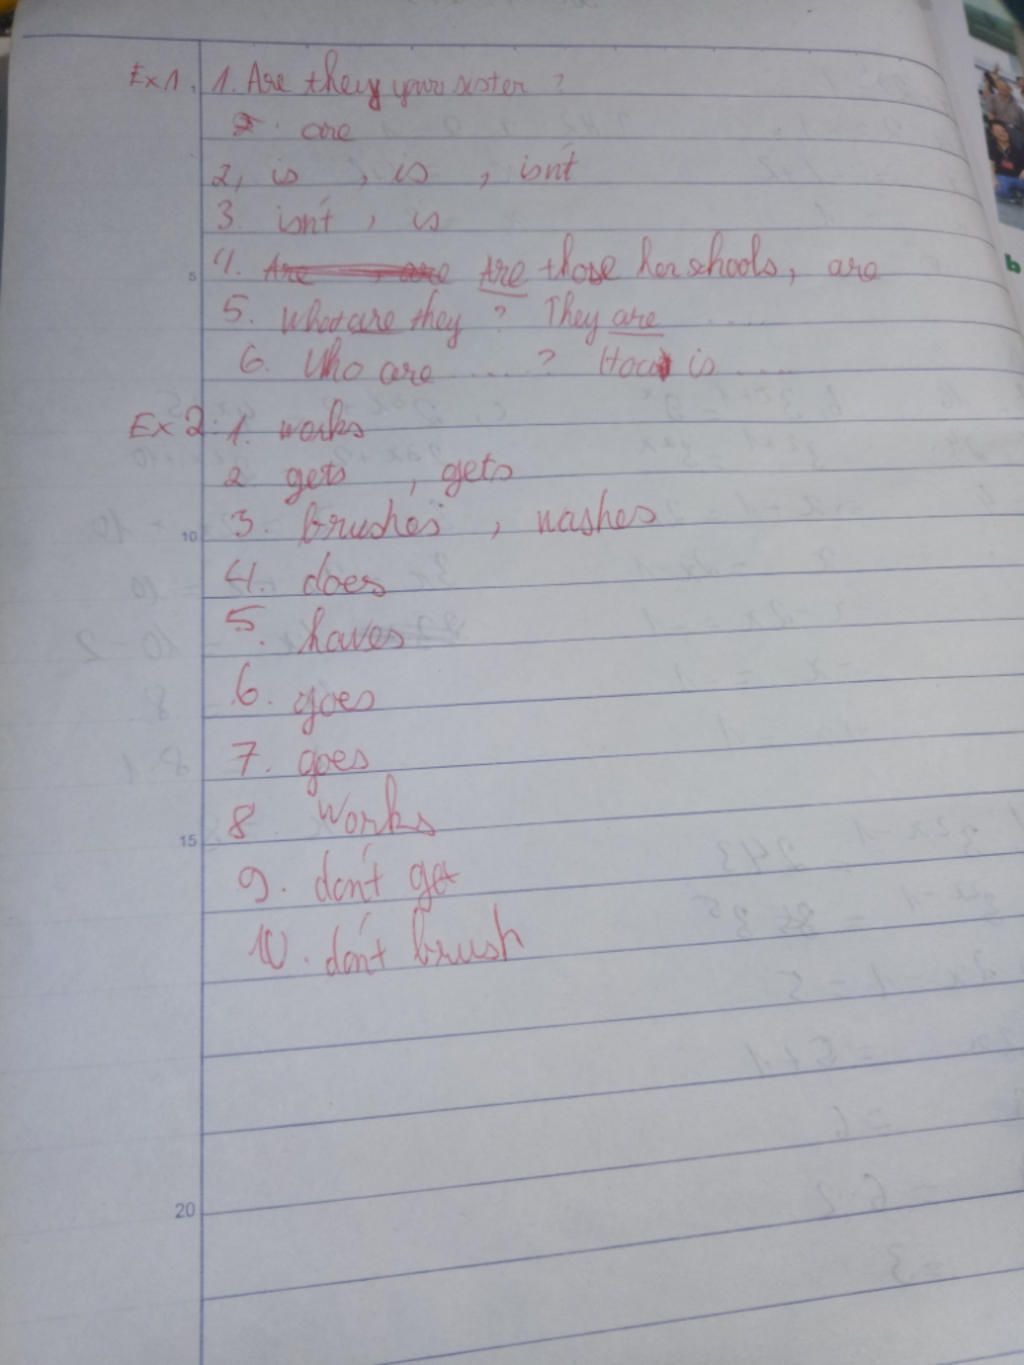 Ex1. 1. Are they your sister ?
are
2, is , is , isn't
3. isn't , is
4. Are those her schools, are
5. What are they ? They are .....
6. Who are ..... ? Hoa is .....
Ex 2: 1. works
2 gets , gets
3. brushes , washes
4. does
5. haves
6. goes
7. goes
8 works
9. don't get
10. don't brush
5
10
15
20
b